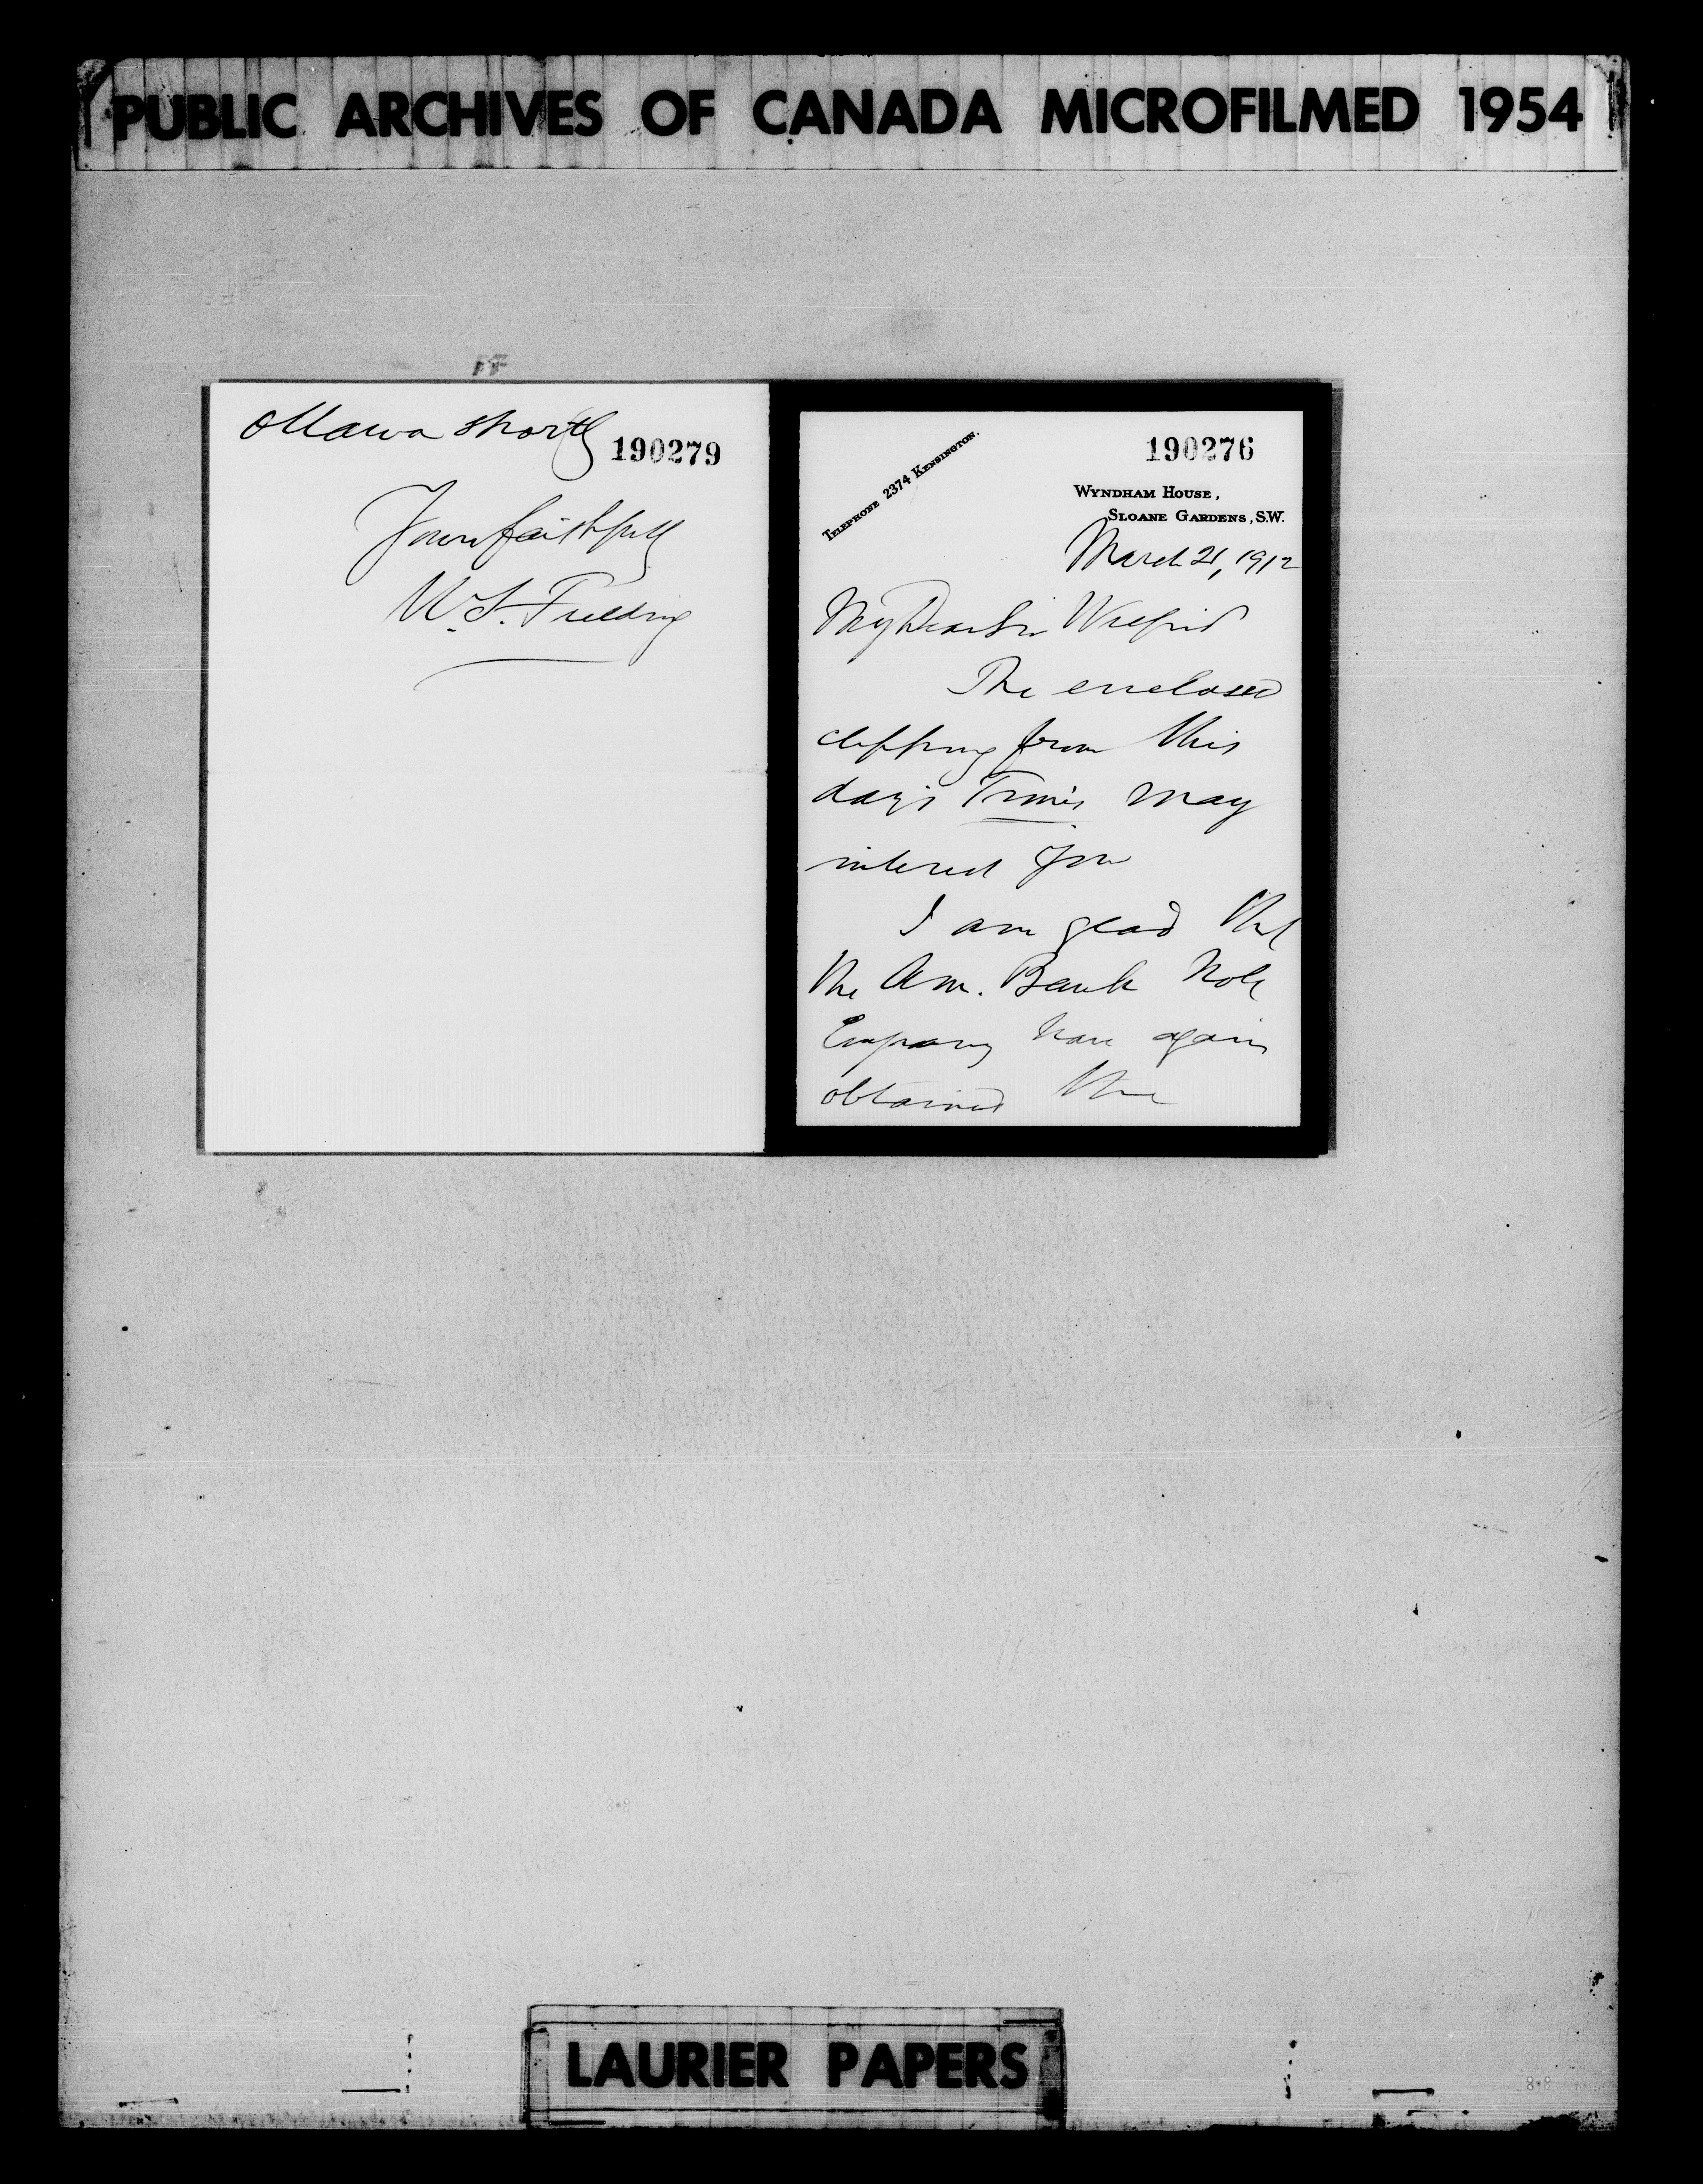 PUBLIC ARCHIVES OF CANADA MICROFILMED 1954
Ottawa shortly
190279
Yours faithfully
W. S. Fielding
190276
TELEPHONE 2374 KENSINGTON.
WYNDHAM HOUSE,
SLOANE GARDENS, S.W.
March 21, 1912
My Dear Sir Wilfrid
The enclosed
clipping from this
day's Times may
interest you
I am glad that
the Am. Bank Note
Company have again
obtained the
LAURIER PAPERS